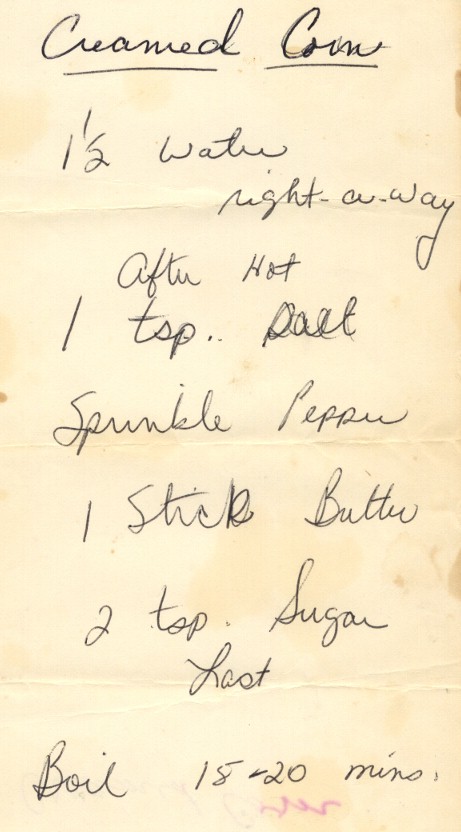 Creamed Corn
1 1/2 water
right-a-way
After Hot
1 tsp.. Salt
Sprinkle Pepper
1 Stick Butter
2 tsp. Sugar
Last
Boil 15-20 mins.